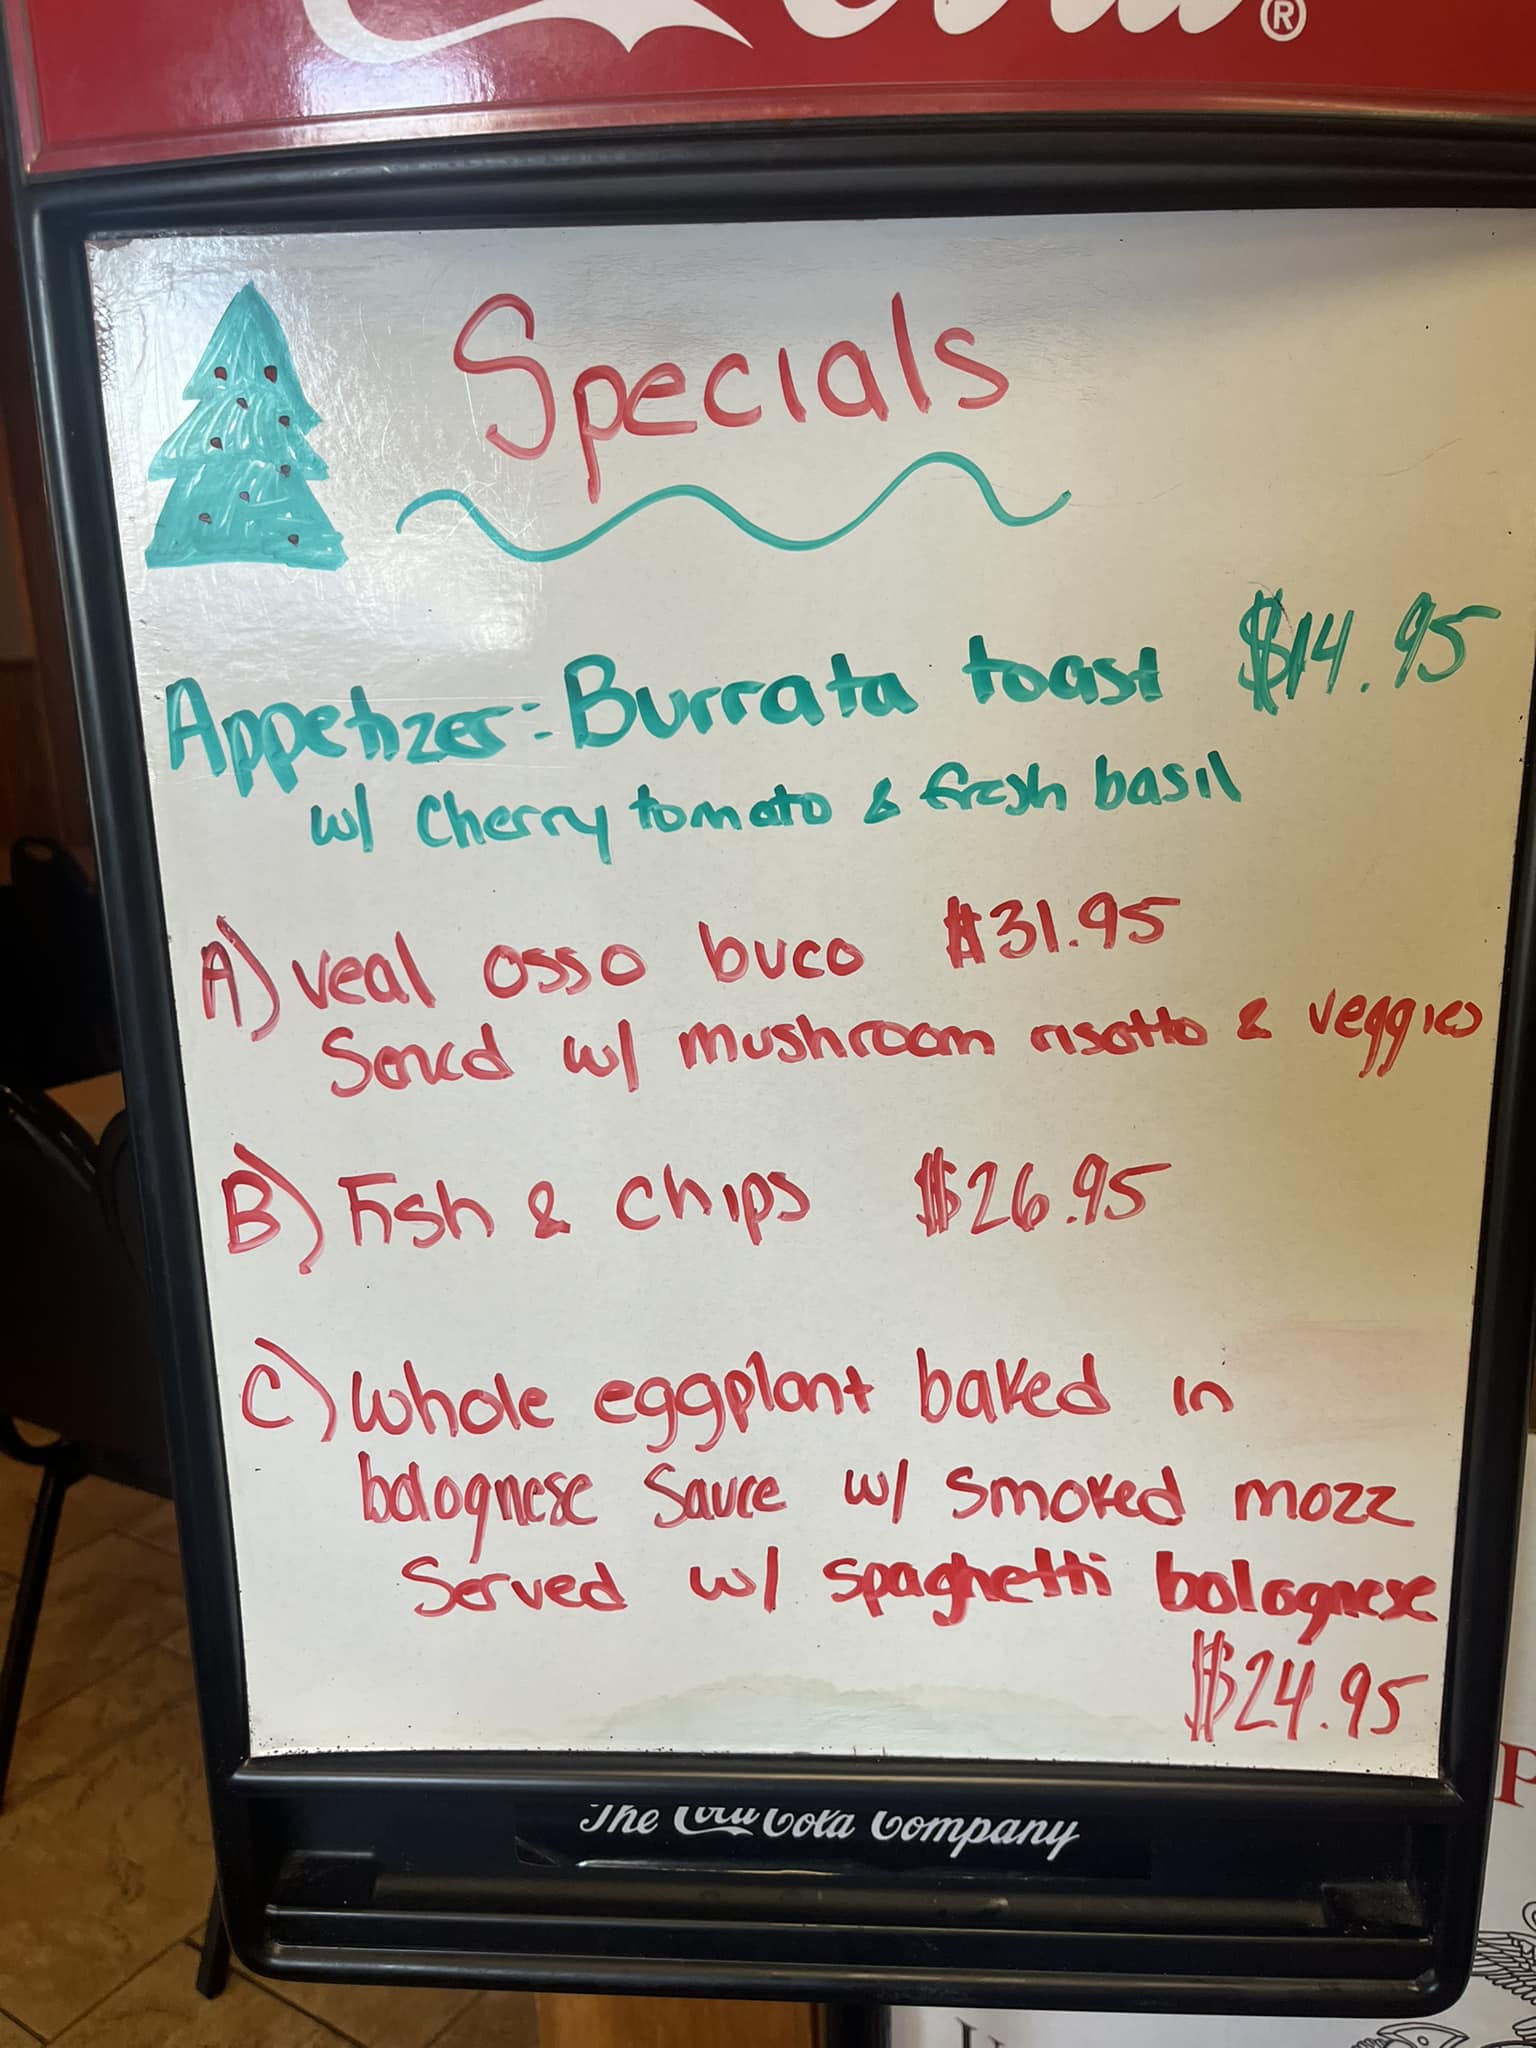 Cola®
Specials
Appetizer: Burrata toast $14.95
w/ Cherry tomato & fresh basil
A) veal osso buco $31.95
Served w/ mushroom risotto & veggies
B) Fish & chips $26.95
C) Whole eggplant baked in
bolognese sauce w/ smoked mozz
Served w/ spaghetti bolognese
$24.95
The Coca-Cola Company
P